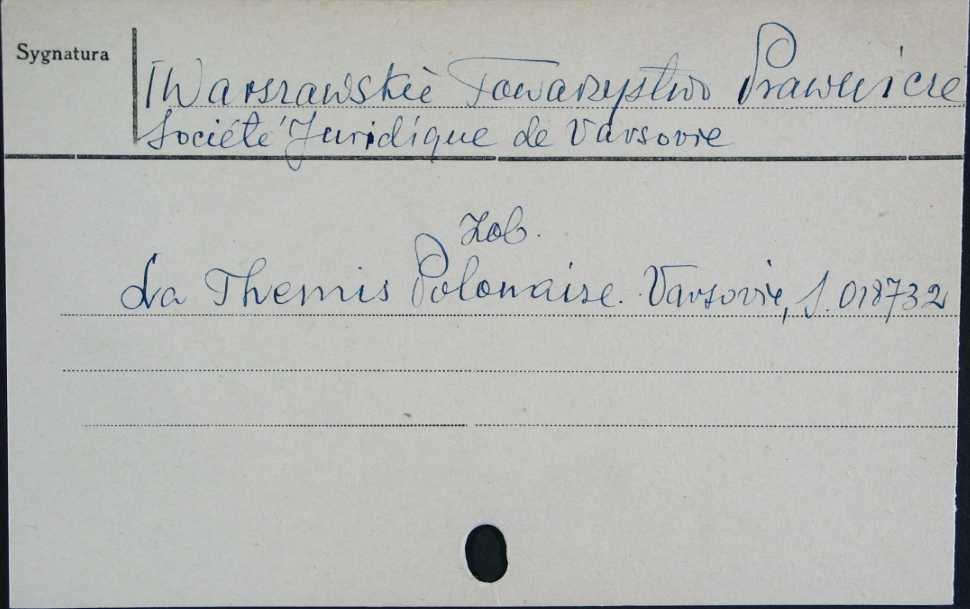 Sygnatura
Warszawskie Towarzystwo Prawnicze
Société Juridique de Varsovie
Zob.
La Themis Polonaise. Varsovie, S. 018732